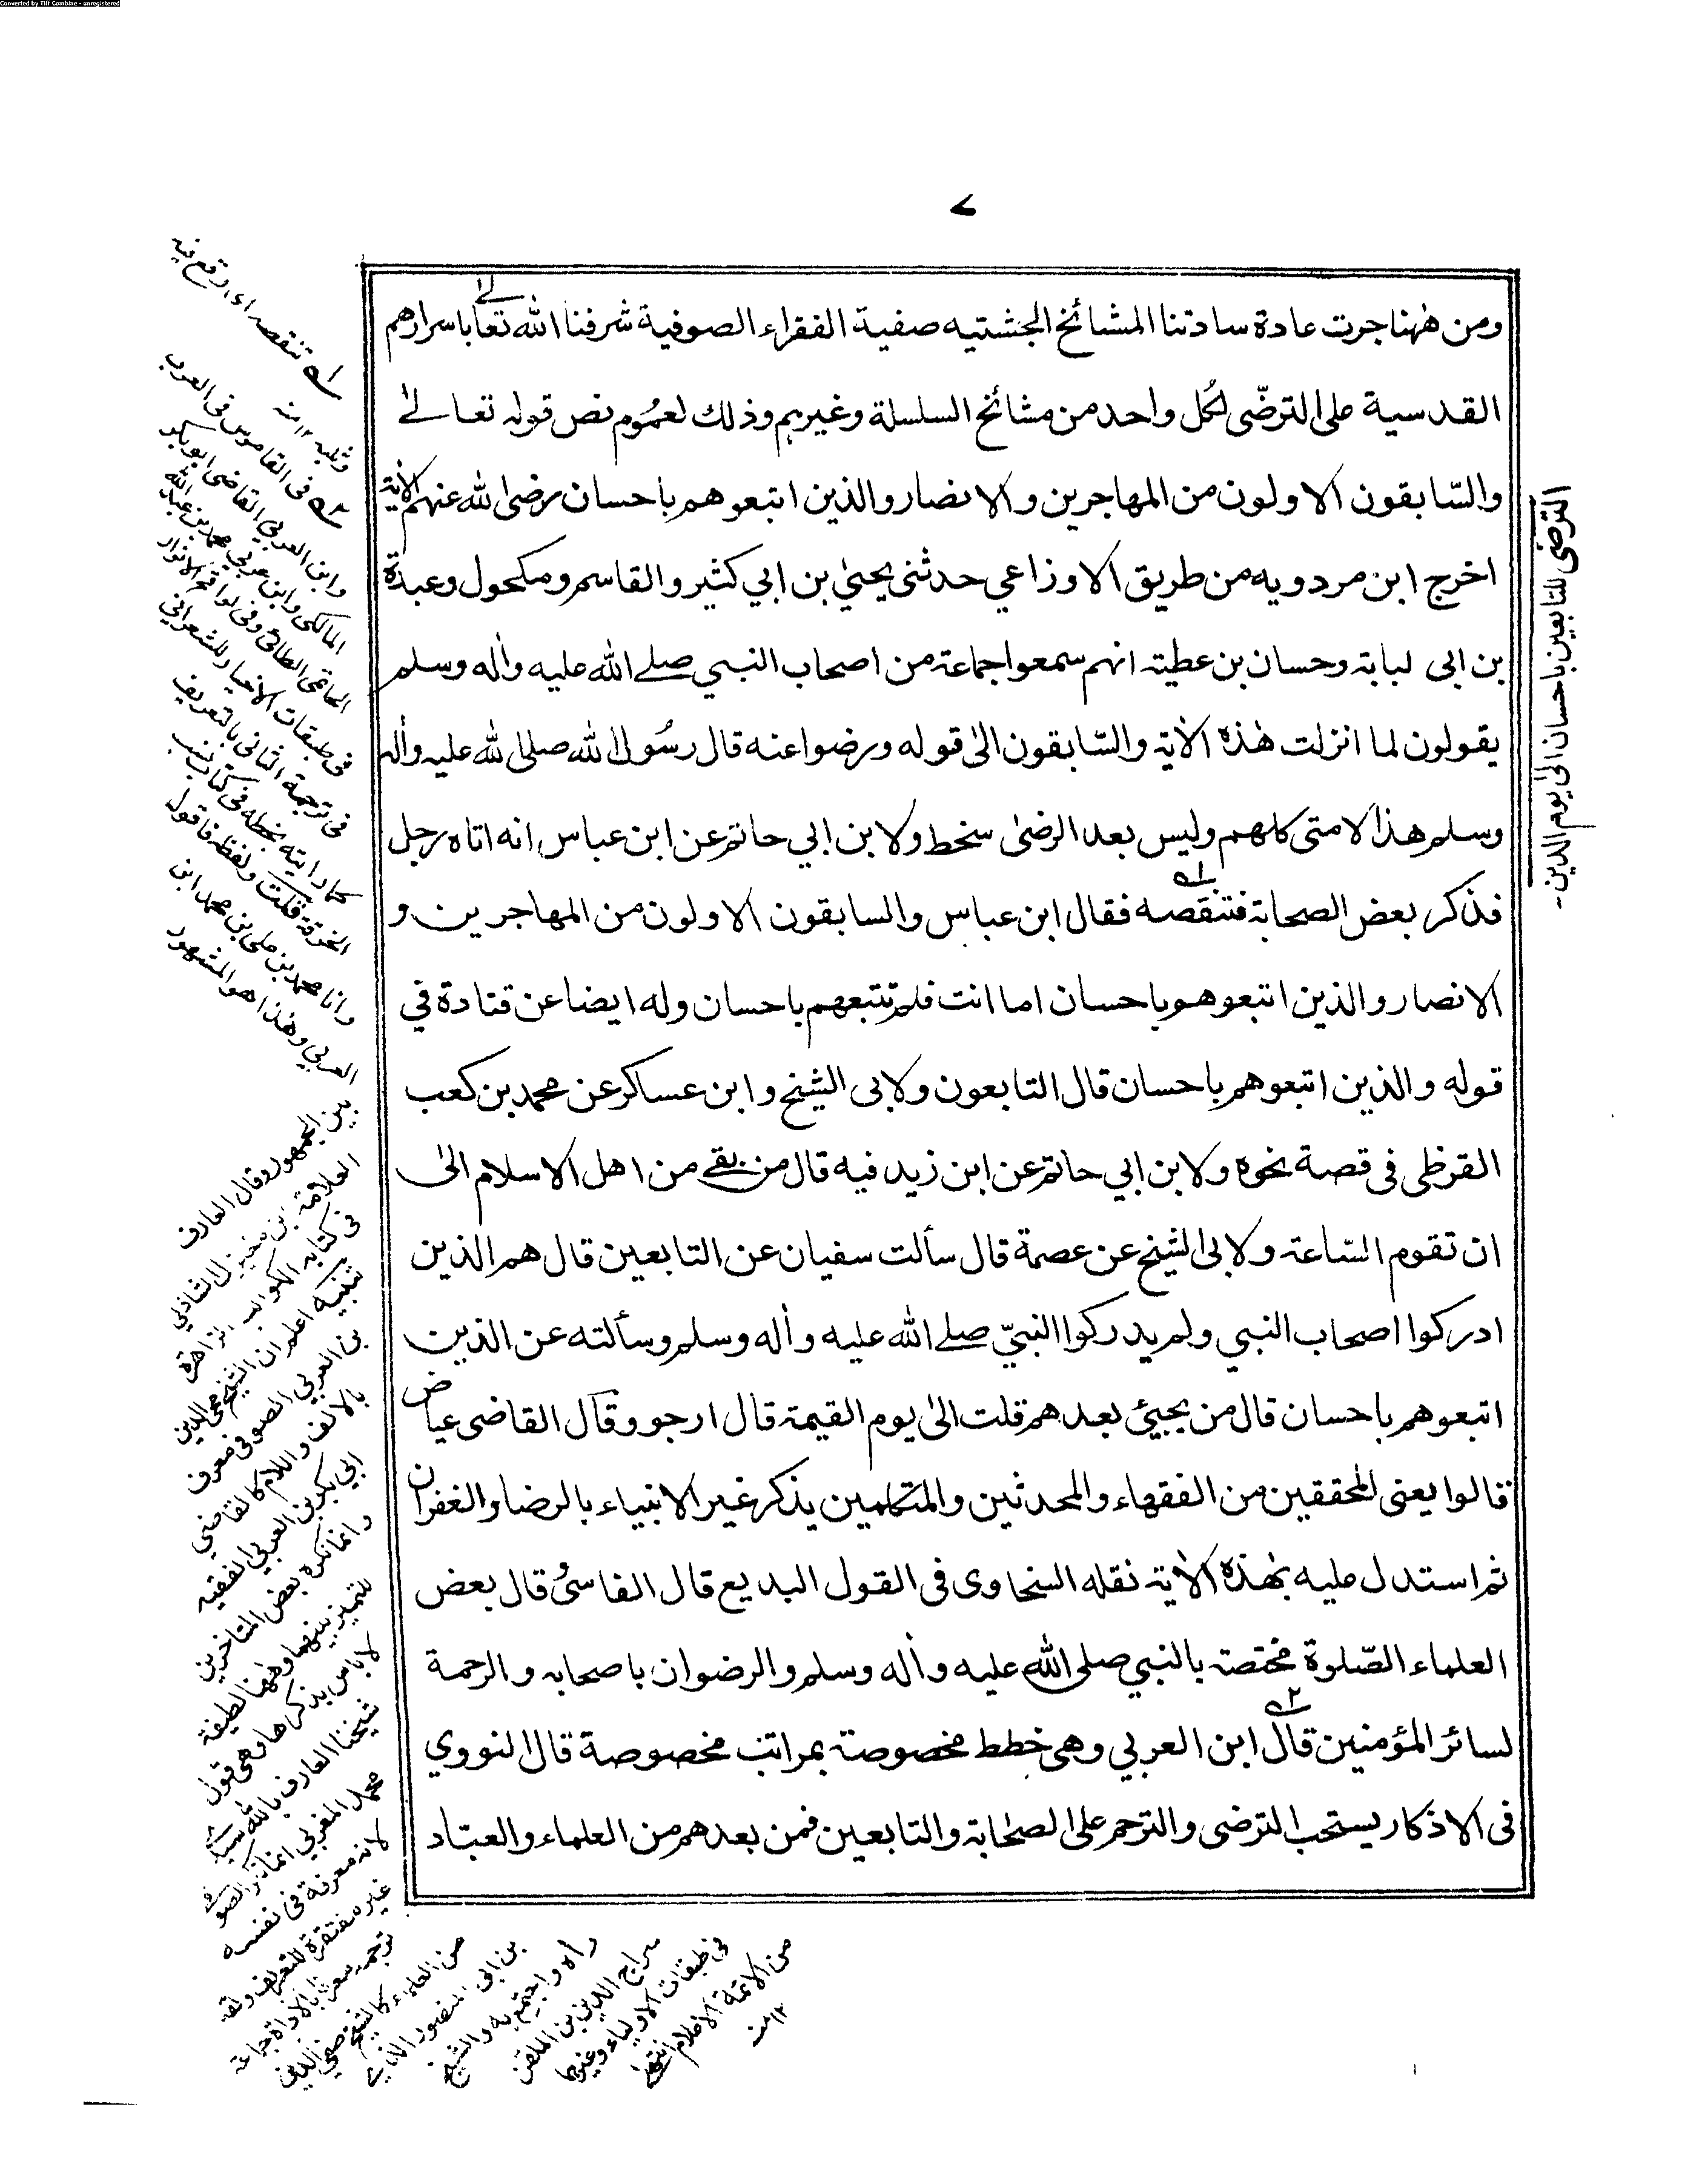 Converted by Tiff Combine - unregistered
٧
ومن ههنا جرت عادة ساداتنا المشائخ الچشتيه صفية الفقراء الصوفية شرفنا الله تعالى باسرارهم
القدسية على الترضّى لكل واحد من مشائخ السلسلة وغيرهم وذلك لعموم نص قوله تعالىٰ
والسّابقون الاولون من المهاجرين والانصار والذين اتبعوهم باحسان رضى الله عنهم الاٰية
اخرج ابن مردويه من طريق الاوزاعي حدثنى يحيىٰ بن ابي كثير والقاسم ومكحول وعبدة
بن ابى لبابة وحسان بن عطية انهم سمعوا جماعة من اصحاب النبي صلے الله عليه واٰله وسلم
يقولون لما انزلت هٰذه الاٰية والسّابقون الىٰ قوله ورضوا عنه قال رسُول الله صلى الله عليه واٰله
وسلم هذا لامتى كلهم وليس بعد الرضىٰ سخط ولابن ابي حاتم عن ابن عباس انه اتاه رجل
فذكر بعض الصحابة فتنقصه <sup>١</sup> فقال ابن عباس والسابقون الاولون من المهاجرين و
الانصار والذين اتبعوهم باحسان اما انت فلم تتبعهم باحسان وله ايضا عن قتادة في
قوله والذين اتبعوهم باحسان قال التابعون ولابى الشيخ وابن عساكر عن محمد بن كعب
القرظى فى قصة نحوه ولابن ابي حاتم عن ابن زيد فيه قال من بقے من اهل الاسلام الىٰ
ان تقوم السّاعة ولابى الشيخ عن عصمة قال سألت سفيان عن التابعين قال هم الذين
ادركوا اصحاب النبي ولم يدركوا النبيّ صلے الله عليه واٰله وسلم وسألته عن الذين
اتبعوهم باحسان قال من يجيئ بعدهم قلت الىٰ يوم القيمة قال ارجو وقال القاضى عياض
قالوا يعنى المحققين من الفقهاء والمحدثين والمتكلمين يذكر غير الانبياء بالرضا والغفران
ثم استدل عليه بهٰذه الاٰية نقله السخاوى فى القول البديع قال الفاسىُ قال بعض
العلماء الصّلوة مختصة بالنبي صلى الله عليه واٰله وسلم والرضوان باصحابه والرحمة
لسائر المؤمنين قال <sup>٢</sup> ابن العربي وهى خطط مخصوصة بمراتب مخصوصة قال النووي
فى الاذكار يستحب الترضى والترحم على الصحابة والتابعين فمن بعدهم من العلماء والعبّاد
الترضى للتابعين باحسان الىٰ يوم الدين -
١ تنقصه اى وقع فيه
وثلبه ١٢ منه
٢ فى القاموس فى العرب
وابن العربي القاضى ابوبكر
المالكى وابن عربي محمد بن عبد الله
الحاتمى الطائى وفى لواقح الانوار
فى طبقات الاخيار للشعراني
فى ترجمة الثانى بالتعريف
كما رايته بخطه فى كتاب نسب
الخرقة قلت ولفظه فاقول
وانا محمد بن على بن محمد ابن
العربي وهذا هو المشهور
بين الجمهور وقال العارف
العلامة بن الشاذلي
فى كتابه الكواكب الزاهرة
تنبيه اعلم ان الشيخ محى الدين
بن العربي الصوفى معرف
بالالف واللام كالقاضي
ابي بكر بن العربي الفقيه
وانما نكره بعض المتاخرين
للتميز بينهما وههنا لطيفة
لا باس بذكرها وهى قول
شيخنا العارف بالله سيدى
محمد المغربي انما نكر الصوفى
لانه معرفة فى نفسه
غير مفتقرة للتعريف وقد
ترجمه بالاداة جماعة
من العلماء كالشيخ صفى الدين
بن ابى المنصور الذى
رأه واجتمع به والشيخ
سراج الدين بن الملقن
فى طبقات الاولياء وغيرها
من الائمة الاعلام انتهى
١٢ منه